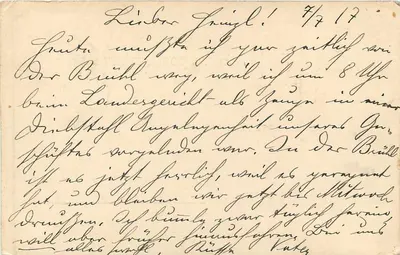 Lieber Heinzl! 7/7 17
Heute mußte ich gar zeitlich von
der Brühl weg, weil ich um 8 Uhr
beim Landesgericht als Zeuge in einer
Diebstahl Angelegenheit unseres Ge-
schäftes vorgeladen war. In der Brühl
ist es jetzt herrlich, weil es geregnet
hat, und bleiben wir jetzt bis Mittwoch
draussen. Ich bumle zwar täglich herein,
will aber früher hinausfahren. Bei uns
alles wohl. Küsse Vater